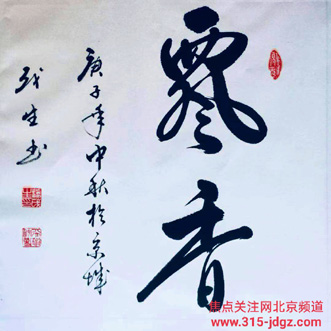 飘香
庚子年中秋於京城
战生书
焦点关注网北京频道
www.315-jdgz.com